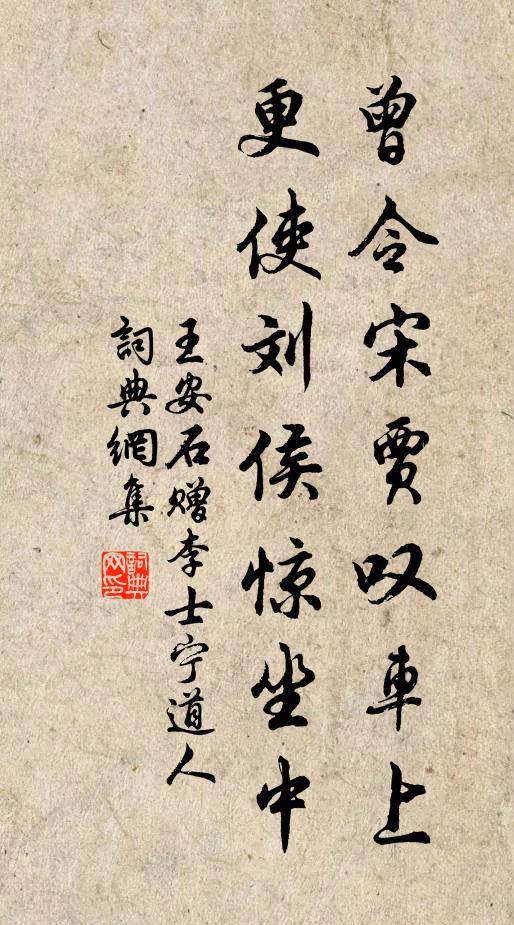 曾令宋贾叹車上
更使刘侯惊坐中
王安石赠李士宁道人
詞典網集
詞典网印